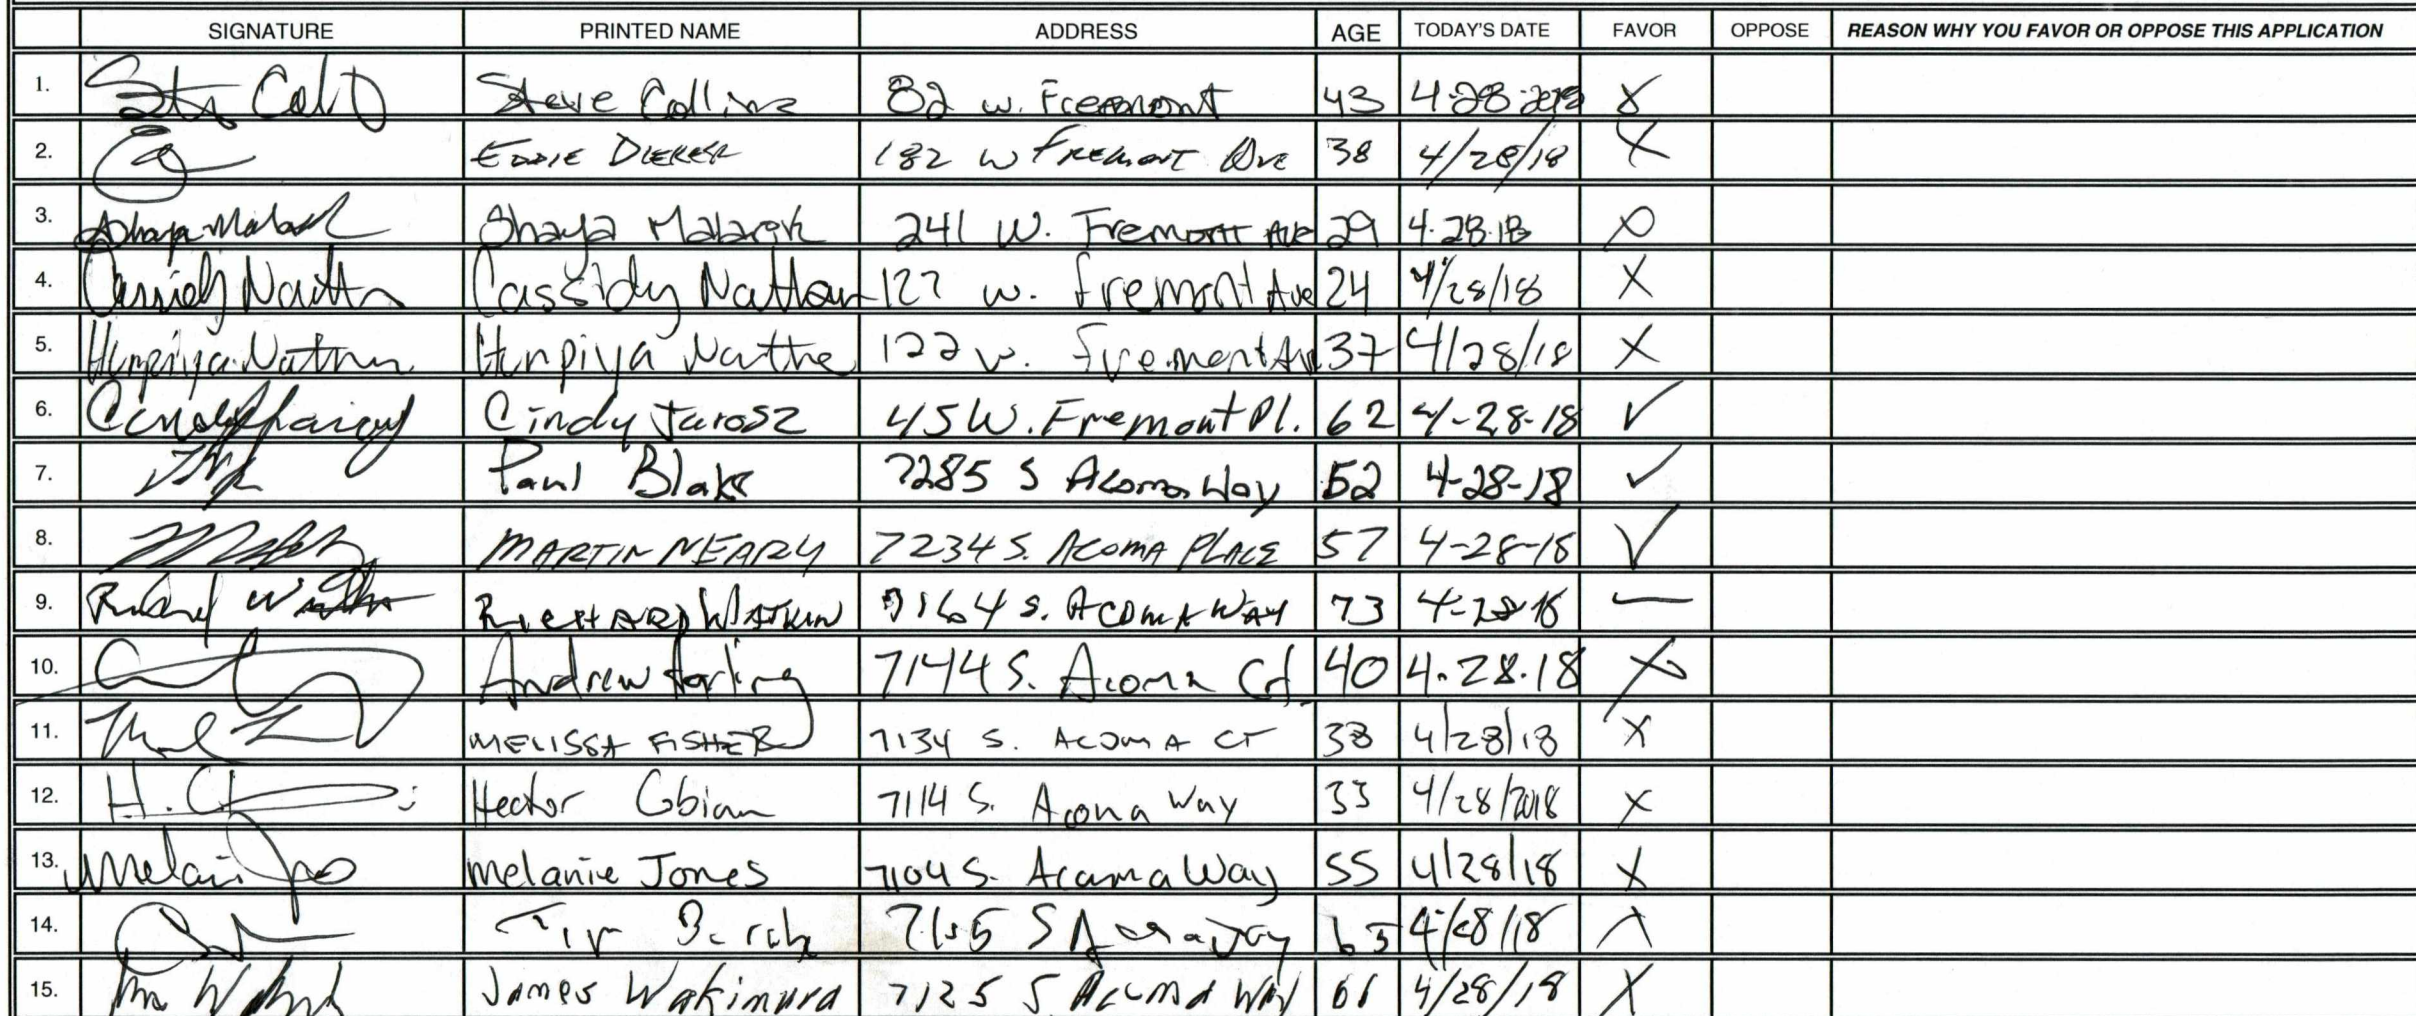 SIGNATURE PRINTED NAME ADDRESS AGE TODAY'S DATE FAVOR OPPOSE REASON WHY YOU FAVOR OR OPPOSE THIS APPLICATION
1. Steve Collins 82 w. Freemont 43 4-28-2018 X
2. EDDIE DIERKER 182 W FREMONT Ave 38 4/28/18 X
3. Shaya Malarik 241 W. Fremont Ave 29 4.28.18 X
4. Cassidy Nathan Cassidy Nathan 122 w. Fremont Ave 24 4/28/18 X
5. Nathan 122 w. Fremont Av 37 4/28/18 X
6. Cindy Jarosz 45 W. Fremont Pl. 62 4-28-18 ✓
7. Paul Blake 7285 S Acoma Way 52 4-28-18 ✓
8. MARTIN NEARY 7234 S. ACOMA PLACE 57 4-28-18 ✓
9. RICHARD WATKIN 7164 S. ACOMA WAY 73 4-28-18 —
10. Andrew Harling 7144 S. Acoma Ct. 40 4.28.18 X
11. MELISSA FISHER 7134 S. ACOMA CT 38 4/28/18 X
12. H. Hector Cobian 7114 S. Acoma Way 33 4/28/2018 X
13. Melanie Jones 7104 S. Acama Way 55 4/28/18 X
14. S Way 65 4/28/18 X
15. James Wakimura 7125 S Acoma Way 61 4/28/18 X